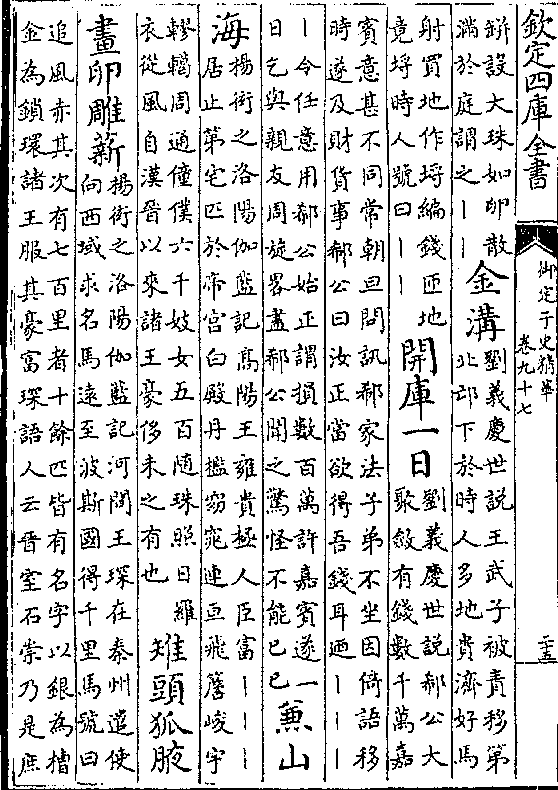 欽定四庫全書
御定子史精華
卷九十七
二十五
缾設大珠如卵散
滿於庭謂之丨丨
金溝
劉義慶世說王武子被責移第
北邙下於時人多地貴濟好馬
射買地作埒編錢匝地
竟埒時人號曰丨丨
開庫一日
劉義慶世說郗公大
聚斂有錢數千萬嘉
賓意甚不同常朝旦問訊郗家法子弟不坐因倚語移
時遂及財貨事郗公曰汝正當欲得吾錢耳迺丨丨丨
丨令任意用郗公始正謂損數百萬許嘉賓遂一
日乞與親友周旋畧盡郗公聞之驚怪不能已已
兼山
海
楊衒之洛陽伽藍記高陽王雍貴極人臣富丨丨丨
居止第宅匹於帝宮白殿丹檻窈窕連亘飛簷峻宇
轇轕周通僮僕六千妓女五百隨珠照日羅
衣從風自漢晉以來諸王豪侈未之有也
雉頭狐腋
畫卵雕薪
楊衒之洛陽伽藍記河間王琛在秦州遣使
向西域求名馬遠至波斯國得千里馬號曰
追風赤其次有七百里者十餘匹皆有名字以銀為槽
金為鎖環諸王服其豪富琛語人云晉室石崇乃是庶